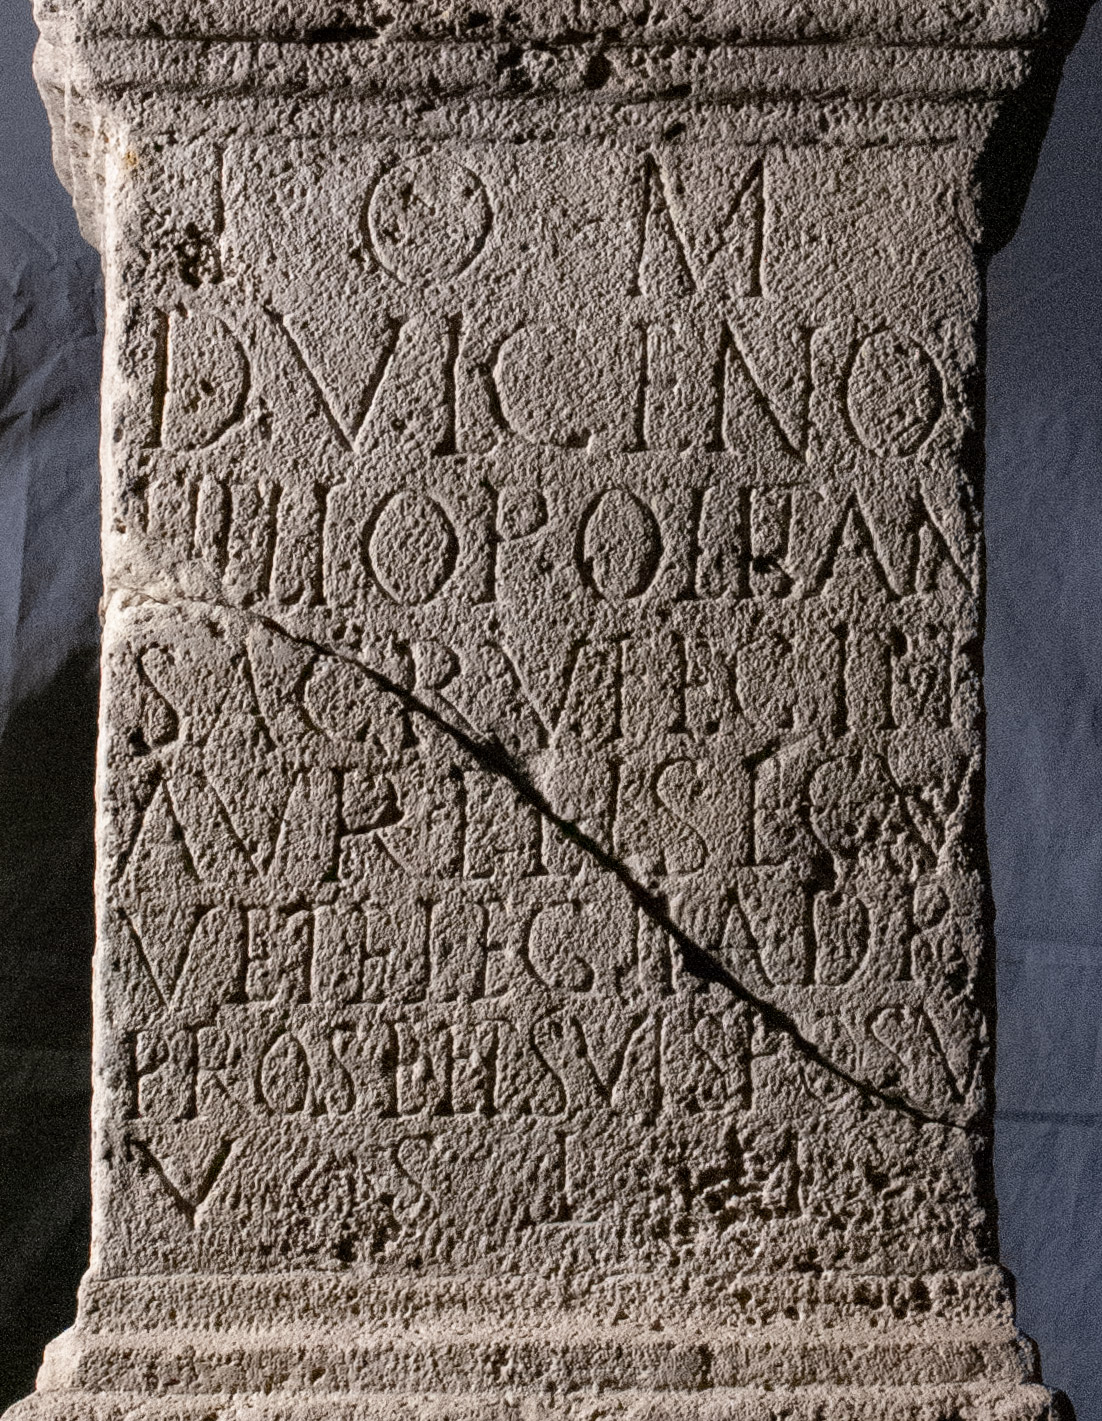 I O M
DVICINO
ETHOPOLITAN
SACRVFECIT
AVRELIVS
VETLEGIIADP
PROSEETSVISPOSV
V S L